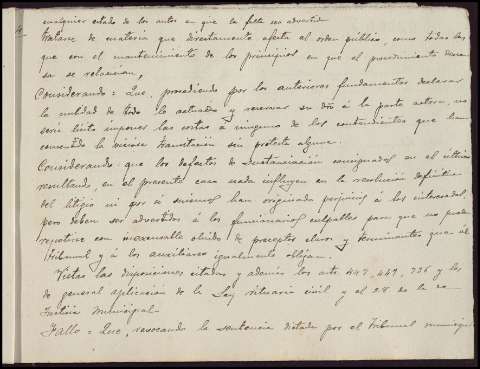 cualquier estado de los autos en que la falta sea advertida
tratarse de materia que directamente afecta al orden público, como todas las
que con el mantenimiento de los principios en que el procedimiento descan-
sa se relacionan,
Considerando: Que, procediendo por los anteriores fundamentos declarar
la nulidad de todo lo actuado y reservar su dro á la parte actora, no
seria justo imponer las costas á ninguno de los contendientes que han
consentido la viciosa tramitación sin protesta alguna.
Considerando: que los defectos de sustanciación consignados en el último
resultando, en el presente caso nada influyen en la resolución definitiva
del litigio ni por si mismos han originado perjuicios á los interesados,
pero deben ser advertidos á los funcionarios culpables para que no pueda
repetirse con inexcusable olvido de preceptos claros y terminantes que al
Tribunal y á los auxiliares igualmente obligan.
Vistas las disposiciones citadas y además los arts 447, 449, 736 y los
de general aplicación de la Ley rituaria civil y el 28 de la de
Justicia Municipal.
Fallo = Que, revocando la sentencia dictada por el Tribunal municipal